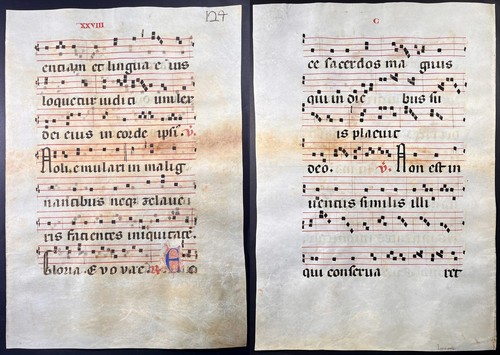 xxviii
124
entiam et lingua eius
loquetur iuditium lex
dei eius in corde ipsi. v.
Noli emulari in malig
nantibus neqz zelaveri
ris facientes iniquitatē.
Gloria. E v o v a e. R. E
C
ce sacerdos magnus
qui in die bus su
is placuit
deo. v. Non est in
uentus similis illi
qui conserva ret